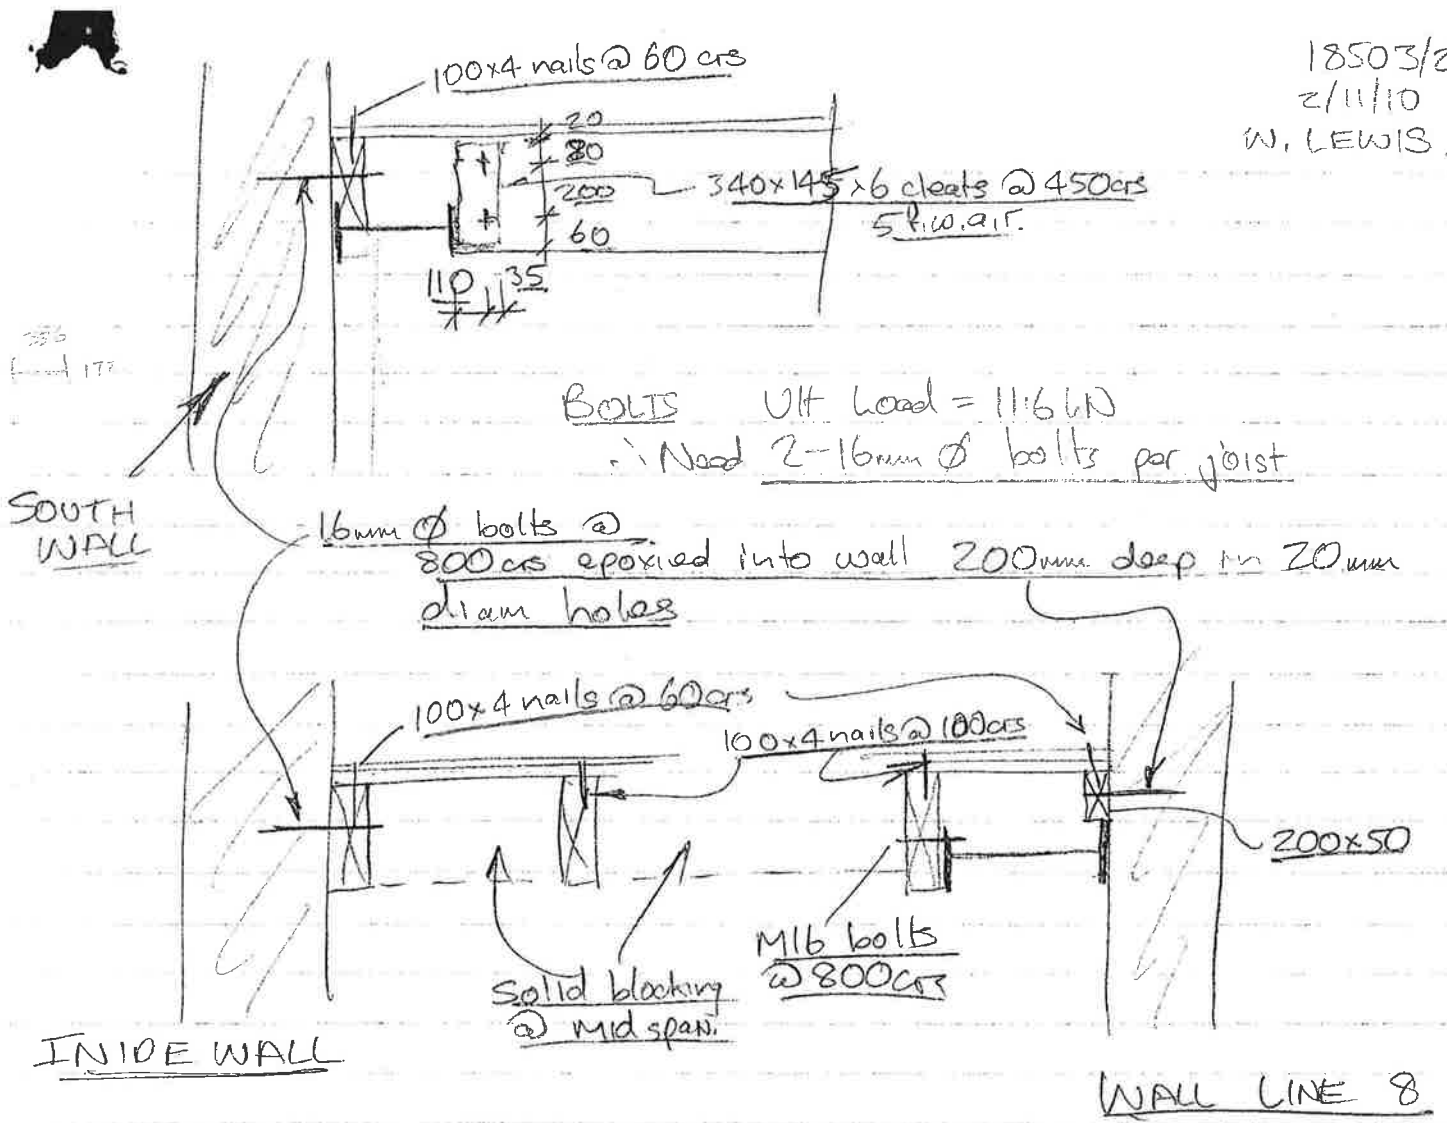 18503/2
2/11/10
W. LEWIS.
100x4 nails @ 60 crs
20
80
200
60
340x145x6 cleats @ 450crs
5 f.w.a.r.
110
35
177
BOLTS Ult Load = 11.6 kN
∴ Need 2-16mm Ø bolts per joist
SOUTH
WALL
16mm Ø bolts @
800crs epoxied into wall 200mm deep in 20mm
diam holes
100x4 nails @ 60crs
100x4 nails @ 100crs
200x50
M16 bolts
@ 800crs
Solid blocking
@ mid span.
INIDE WALL
WALL LINE 8